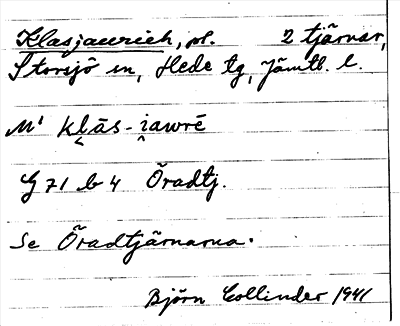 Klasjaurieh, pl. 2 tjärnar,
Storsjö sn, Hede tg, Jämtl. l.
M' kl̨ās-i̯awrē
G 71 b 4 Öradtj.
Se Öradtjärnarna.
Björn Collinder 1941